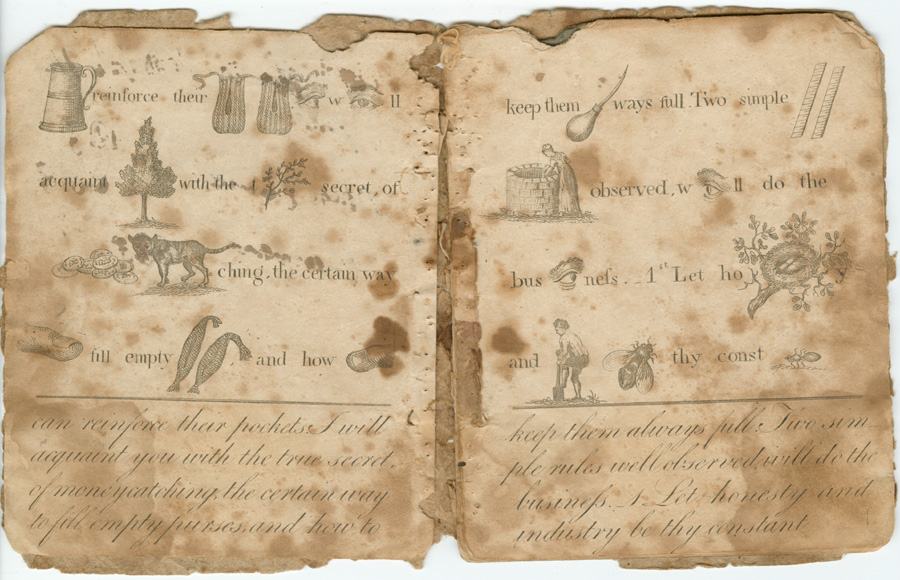 reinforce their w ll
acquaint with the t secret, of
ching, the certain way
fill empty and how
can reinforce their pockets: I will
acquaint you with the true secret,
of moneycatching, the certain way
to fill empty purses, and how to
keep them ways full. Two simple
observed, w ll do the
bus neſs. _ 1st Let ho
and thy const
keep them always full: Two sim
ple rules well observed, will do the
buſineſs. _ 1 Let honesty and
industry be thy constant